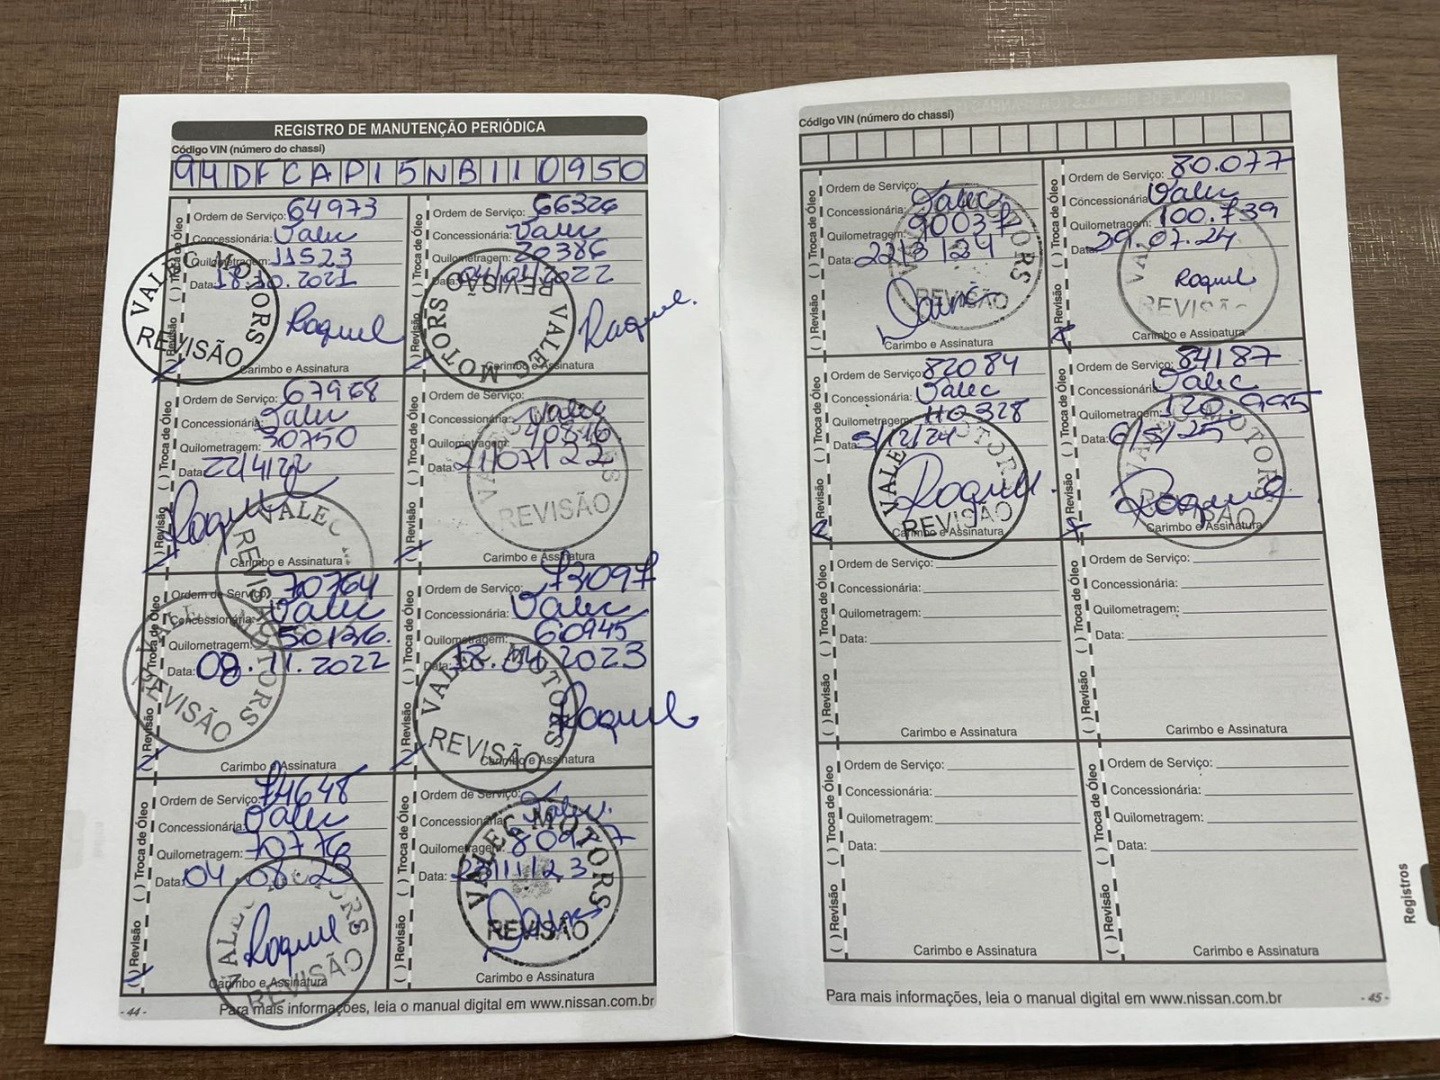 REGISTRO DE MANUTENÇÃO PERIÓDICA
Código VIN (número do chassi)
94DFCAP15NB110950
( ) Revisão ( ) Troca de Óleo
Ordem de Serviço: 64973
Concessionária: Valec
Quilometragem: 11523
Data: 18.10.2021
Raquel
VALEC MOTORS
REVISÃO
Carimbo e Assinatura
( ) Revisão ( ) Troca de Óleo
Ordem de Serviço: 66326
Concessionária: Valec
Quilometragem: 20386
Data: 04/01/2022
Raquel
VALEC MOTORS
REVISÃO
Carimbo e Assinatura
( ) Revisão ( ) Troca de Óleo
Ordem de Serviço: 67968
Concessionária: Valec
Quilometragem: 30750
Data: 22/4/22
Raquel
VALEC
REVISÃO
Carimbo e Assinatura
( ) Revisão ( ) Troca de Óleo
Ordem de Serviço:
Concessionária: Valec
Quilometragem:
Data: 21/07/22
REVISÃO
Carimbo e Assinatura
( ) Revisão ( ) Troca de Óleo
Ordem de Serviço: 70764
Concessionária: Valec
Quilometragem: 50136.
Data: 08.11.2022
VALEC MOTORS
REVISÃO
Carimbo e Assinatura
( ) Revisão ( ) Troca de Óleo
Ordem de Serviço: 73097
Concessionária: Valec
Quilometragem: 60945
Data: 18.04.2023
Raquel
VALEC MOTORS
REVISÃO
Carimbo e Assinatura
( ) Revisão ( ) Troca de Óleo
Ordem de Serviço: 74648
Concessionária: Valec
Quilometragem: 70776
Data: 04.08.23
Raquel
VALEC MOTORS
REVISÃO
Carimbo e Assinatura
( ) Revisão ( ) Troca de Óleo
Ordem de Serviço:
Concessionária: Valec.
Quilometragem:
Data: 23/11/23
VALEC MOTORS
REVISÃO
Carimbo e Assinatura
- 44 -
Para mais informações, leia o manual digital em www.nissan.com.br
Código VIN (número do chassi)
( ) Revisão ( ) Troca de Óleo
Ordem de Serviço:
Concessionária: Valec
Quilometragem: 90037
Data: 22/3/24
VALEC MOTORS
REVISÃO
Carimbo e Assinatura
( ) Revisão ( ) Troca de Óleo
Ordem de Serviço: 80.077
Concessionária: Valec
Quilometragem: 100.739
Data: 29.07.24
Raquel
REVISÃO
Carimbo e Assinatura
( ) Revisão ( ) Troca de Óleo
Ordem de Serviço: 82084
Concessionária: Valec
Quilometragem: 110328
Data: 5/12/24
Raquel.
VALEC MOTORS
REVISÃO
Carimbo e Assinatura
( ) Revisão ( ) Troca de Óleo
Ordem de Serviço: 84187
Concessionária: Valec
Quilometragem: 120.995
Data: 6/5/25
Raquel
VALEC MOTORS
REVISÃO
Carimbo e Assinatura
( ) Revisão ( ) Troca de Óleo
Ordem de Serviço:
Concessionária:
Quilometragem:
Data:
Carimbo e Assinatura
( ) Revisão ( ) Troca de Óleo
Ordem de Serviço:
Concessionária:
Quilometragem:
Data:
Carimbo e Assinatura
( ) Revisão ( ) Troca de Óleo
Ordem de Serviço:
Concessionária:
Quilometragem:
Data:
Carimbo e Assinatura
( ) Revisão ( ) Troca de Óleo
Ordem de Serviço:
Concessionária:
Quilometragem:
Data:
Carimbo e Assinatura
Registros
Para mais informações, leia o manual digital em www.nissan.com.br
- 45 -